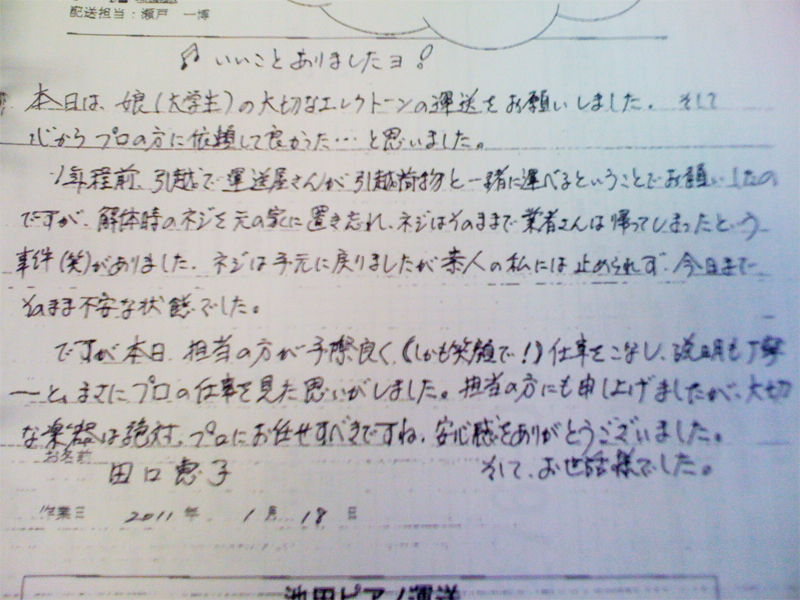 配送担当：瀬戸　一博
♪ いいことありましたヨ！
本日は、娘（大学生）の大切なエレクトーンの運送をお願いしました。そして
心からプロの方に依頼して良かった…と思いました。
1年程前、引越で運送屋さんが引越荷物と一緒に運べるということでお願いしたの
ですが、解体時のネジを元の家に置き忘れ、ネジはそのままで業者さんは帰ってしまったという
事件（笑）がありました。ネジは手元に戻りましたが素人の私には止められず、今日まで
そのまま不安な状態でした。
ですが本日、担当の方が手際良く（しかも笑顔で！）仕事をこなし、説明も丁寧
ーと、まさにプロの仕事を見た思いがしました。担当の方にも申し上げましたが、大切
な楽器は絶対、プロにお任せすべきですね。安心感をありがとうございました。
お名前　田口恵子　そして、お世話様でした。
作業日　2011年　1月　18日
池田ピアノ運送